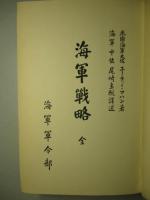 米國海軍大佐 エー、テー、マハン著
海軍中佐 尾崎主税譯述
海軍戰略 全
海軍軍令部